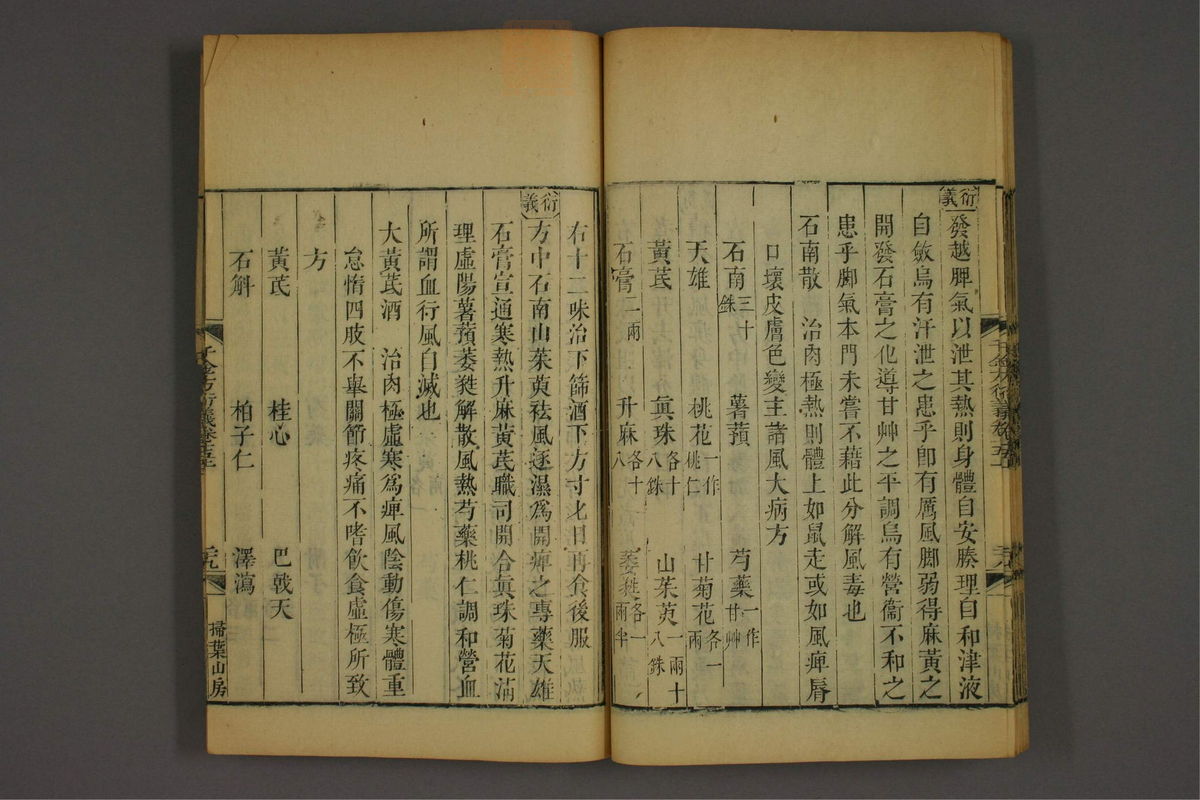 衍義
發越脾氣以泄其熱則身體自安腠理自和津液
自斂烏有汗泄之患乎卽有厲風脚弱得麻黃之
開發石膏之化導甘艸之平調烏有營衞不和之
患乎脚氣本門未嘗不藉此分解風毒也
石南散 治肉極熱則體上如鼠走或如風痺脣
口壞皮膚色變主諸風大病方
石南三十銖 薯蕷 芍藥一作甘艸
天雄 桃花一作桃仁 甘菊花各一兩
黃芪 眞珠各十八銖 山茱萸一兩十八銖
石膏二兩 升麻各十八 葳蕤各一兩半
右十二味治下篩酒下方寸匕日再食後服
衍義
方中石南山茱萸祛風逐濕爲開痺之專藥天雄
石膏宣通寒熱升麻黃芪職司開合眞珠菊花淸
理虛陽薯蕷萎蕤解散風熱芍藥桃仁調和營血
所謂血行風自滅也
大黃芪酒 治肉極虛寒爲痺風陰動傷寒體重
怠惰四肢不舉關節疼痛不嗜飮食虛極所致
方
黃芪 桂心 巴戟天
石斛 柏子仁 澤瀉
千金方衍義卷十五上
三十九
掃葉山房